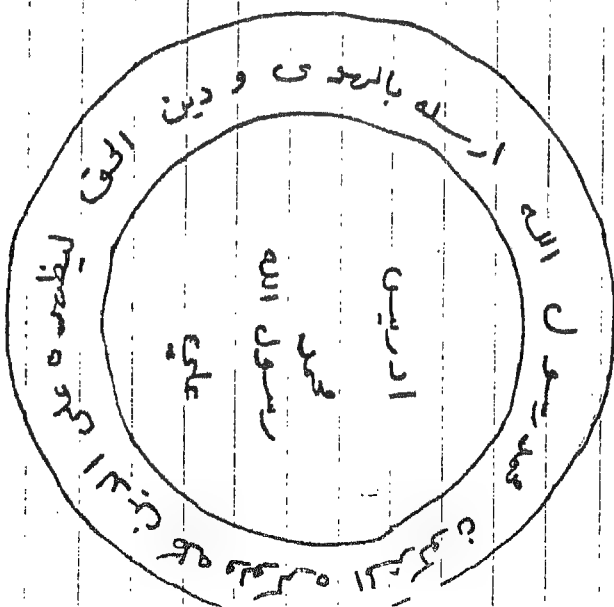 ادريس
محمد
رسول الله
علي
محمد رسول الله ارسله بالهدى و دين الحق ليظهره على الدين كله ولو كره المشركون